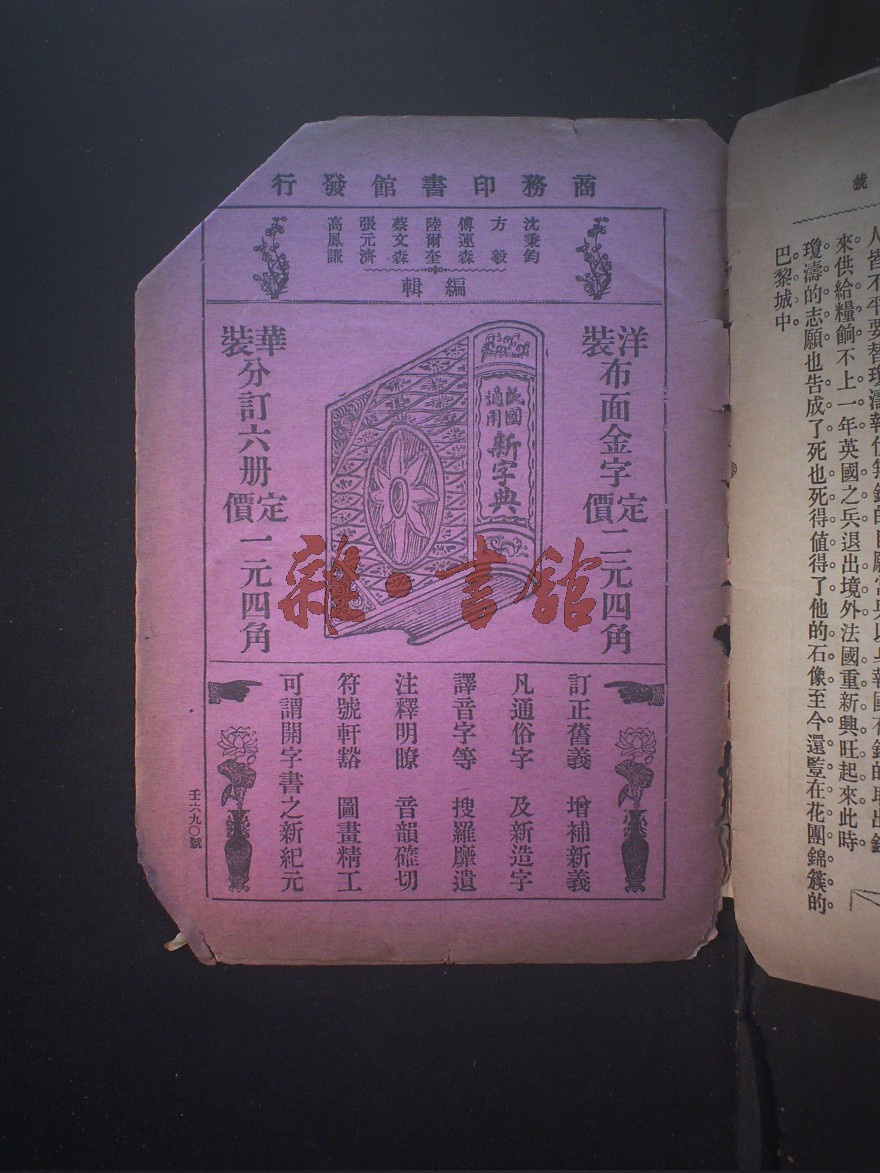 商務印書館發行
沈秉鈞
方毅
傅運森
陸爾奎
蔡文森
張元濟
高鳳謙
編輯
洋裝布面金字定價二元四角
民國適用
新字典
華裝分訂六册定價一元四角
訂正舊義 增補新義
凡通俗字 及新造字
譯音字等 搜羅靡遺
注釋明瞭 音韻確切
符號軒豁 圖畫精工
可謂開字書之新紀元
壬六九〇號
雜·書館
號
來供給糧餉不上一年英國之兵退出境外法國重新興旺起來此時
瓊濤的志願也告成了死也死得值得了他的石像至今還豎在花團錦簇的
巴黎城中。